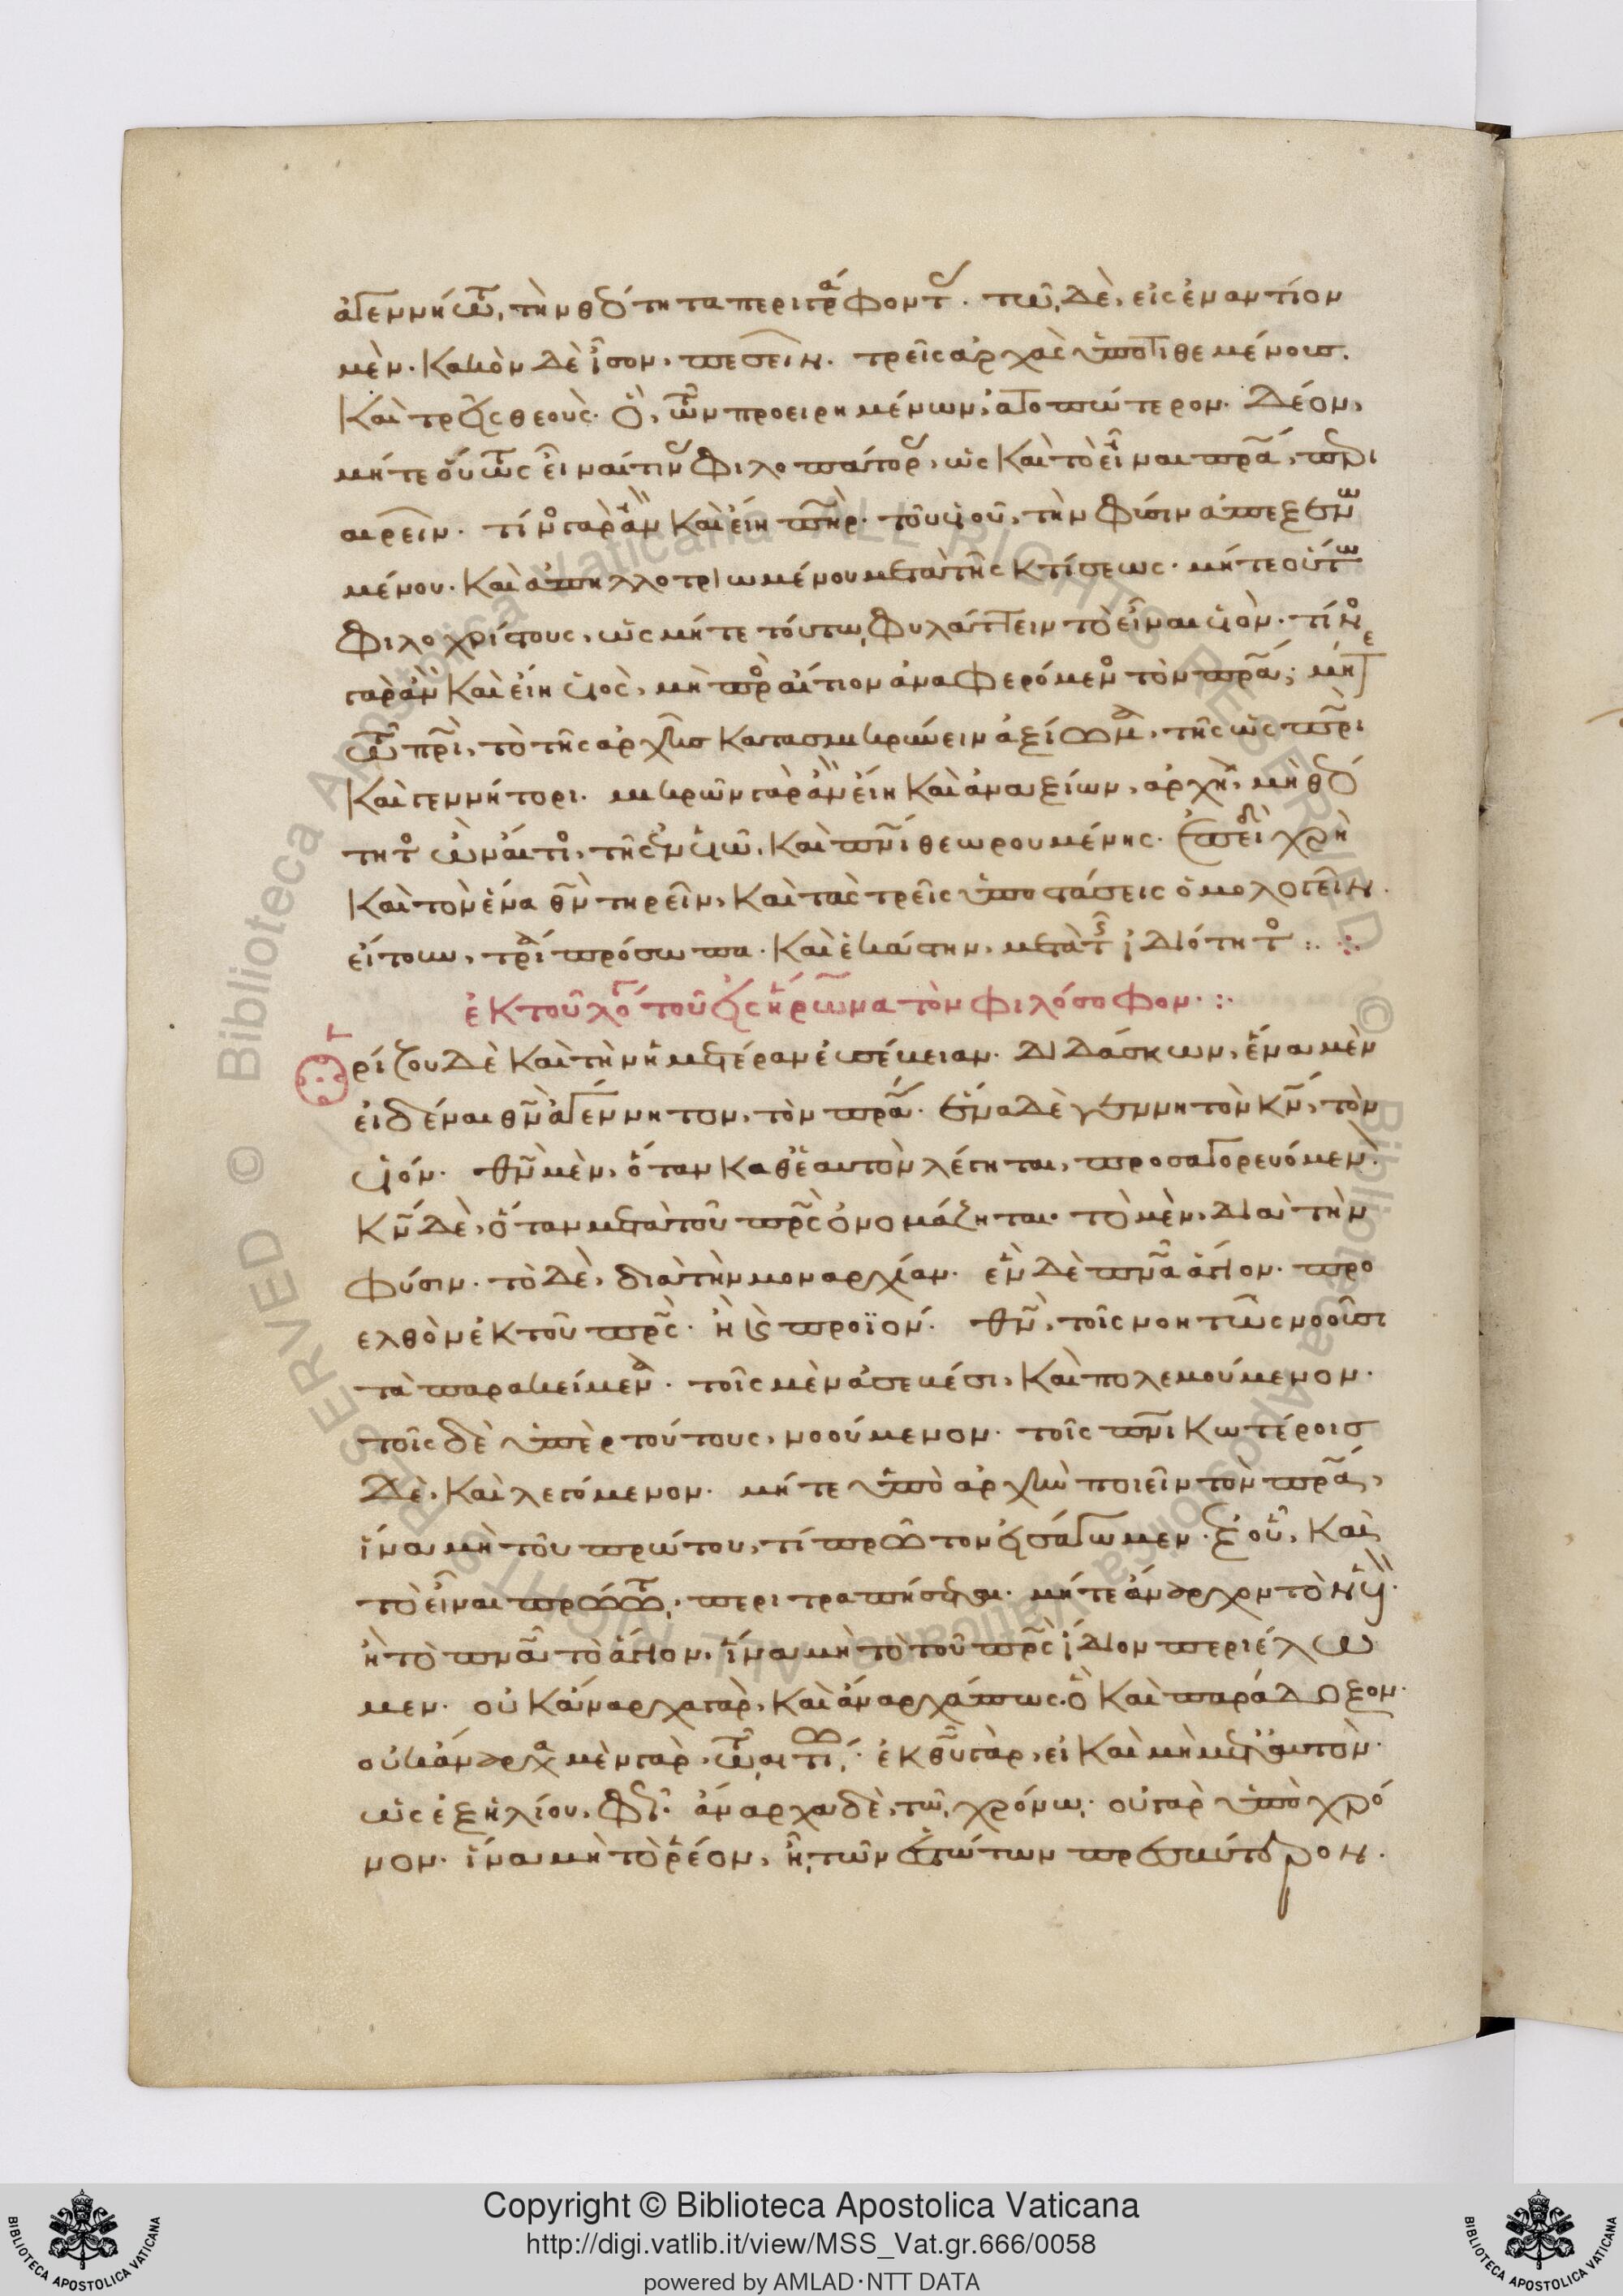 ἀγεννήτω, τὴν θεότητα περιγράφοντες. τῶ δὲ, εἰς ἐναντίον
μὲν. κακὸν δὲ ἶσον, πεσεῖν. τρεῖς ἀρχὰς ὑποτιθεμένοις.
καὶ τρεῖς θεούς. ὃ, τῶν προειρημένων, ἀτοπώτερον. δέον,
μήτε οὕτως εἶναί τινας φιλοπάτορας, ὡς καὶ τὸ εἶναι πρα, περι
αιρεῖν. τίνος γὰρ ἂν καὶ εἴη πηρ. τοῦ υἱοῦ, τὴν φύσιν ἀπεξενω
μένου. καὶ ἀπηλλοτριωμένου μετὰ τῆς κτίσεως. μήτε οὕτω
φιλοχρίστους, ὡς μήτε τούτω, φυλάττειν τὸ εἶναι υἱὸν. τίνος
γὰρ ἂν καὶ εἴη υἱὸς, μὴ πρὸς αἴτιον ἀναφερόμενος τὸν πρα; μήτε
τῶ πρι, τὸ τῆς ἀρχῆς κατασμικρύνειν ἀξίωμα, τῆς ὡς πρι
καὶ γεννήτορι. μικρῶν γὰρ ἂν εἴη καὶ ἀναξίων, ἀρχὴ, μὴ θεό
τητος ὢν αἴτιος, τῆς ἐν υἱῶ, καὶ πνι θεωρουμένης. ἐπειδὴ χρὴ
καὶ τὸν ἕνα θν τηρεῖν, καὶ τὰς τρεῖς ὑποστάσεις ὁμολογεῖν.
εἴτουν, τρία πρόσωπα. καὶ ἑκάστην, μετὰ τῆς ἰδιότητος :.
ἐκ τοῦ λόγου τοῦ εἰς ἥρωνα τὸν φιλόσοφον. :.
Ὁρίζου δὲ καὶ τὴν ἡμετέραν εὐσέβειαν. διδάσκων, ἕνα μὲν
εἰδέναι θν ἀγέννητον, τὸν πρα. ἕνα δὲ γεννητὸν κν, τὸν
υἱόν. θν μὲν, ὅταν καθ' ἑαυτὸν λέγηται, προσαγορευόμενον.
κν δὲ, ὅταν μετὰ τοῦ πρς ὀνομάζηται. τὸ μὲν, διὰ τὴν
φύσιν. τὸ δὲ, διὰ τὴν μοναρχίαν. ἓν δὲ πνα ἅγιον. προ
ελθὸν ἐκ τοῦ πρς. ἢ καὶ προϊὸν. θν, τοῖς νοητῶς νοοῦσι
τὰ παρακείμενα. τοῖς μὲν ἀσεβέσι, καὶ πολεμούμενον.
τοῖς δὲ ὑπὲρ τούτους, νοούμενον. τοῖς πνικωτέροις
δὲ, καὶ λεγόμενον. μήτε ὑπὸ ἀρχὴν ποιεῖν τὸν πρα,
ἵνα μὴ τοῦ πρώτου, τί πρῶτον εἰσάγωμεν. ἐξ οὗ, καὶ
τὸ εἶναι πρώτω, περιτραπήσεται. μήτε ἄναρχον τὸν υἱὸν.
ἢ τὸ πνα τὸ ἅγιον. ἵνα μὴ τὸ τοῦ πρς ἴδιον περιέλω
μεν. οὐκ ἄναρχα γὰρ, καὶ ἄναρχά πως. ὃ καὶ παράδοξον.
οὐκ ἄναρχα μὲν γὰρ, τῶ αἰτίω. ἐκ θυ γὰρ, εἰ καὶ μὴ μετ' αὐτὸν.
ὡς ἐξ ἡλίου, φῶς. ἄναρχα δὲ, τῶ χρόνω. οὐ γὰρ ὑπὸ χρό
νον. ἵνα μὴ τὸ ῥέον, ἢ τῶν ἑστώτων πρεσβύτερον.
Copyright © Biblioteca Apostolica Vaticana
http://digi.vatlib.it/view/MSS_Vat.gr.666/0058
powered by AMLAD·NTT DATA
BIBLIOTECA APOSTOLICA VATICANA
BIBLIOTECA APOSTOLICA VATICANA